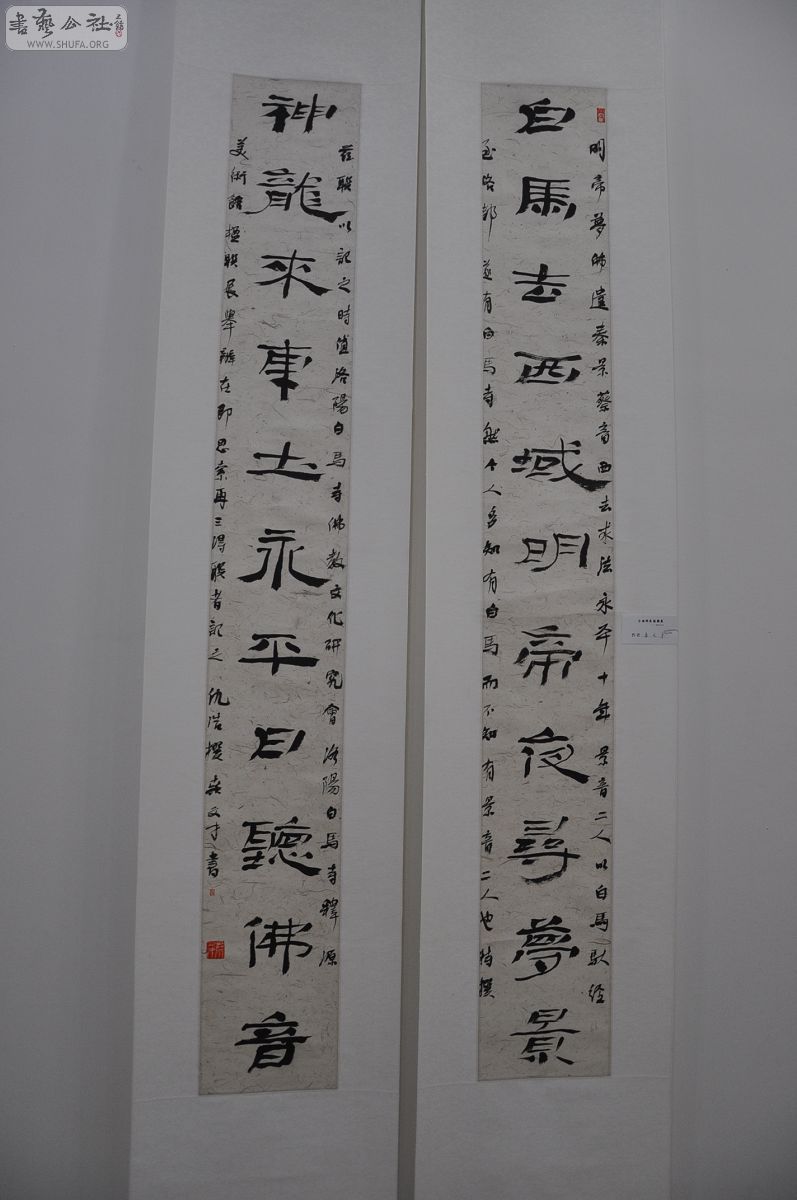 書藝公社
WWW.SHUFA.ORG
明帝夢佛遣秦景蔡音西去求法永平十年景音二人以白馬馱經
白馬去西域明帝夜尋夢景
至洛邾遂有白馬寺然今人多知有白馬而不知有景音二人也特撰
茲聯以記之時值洛陽白馬寺佛教文化研究會洛陽白馬寺釋源
神龍來東土永平日聽佛音
美術館楹聯展舉辦在即思索再三得聯者記之仇浩撰袁文才書